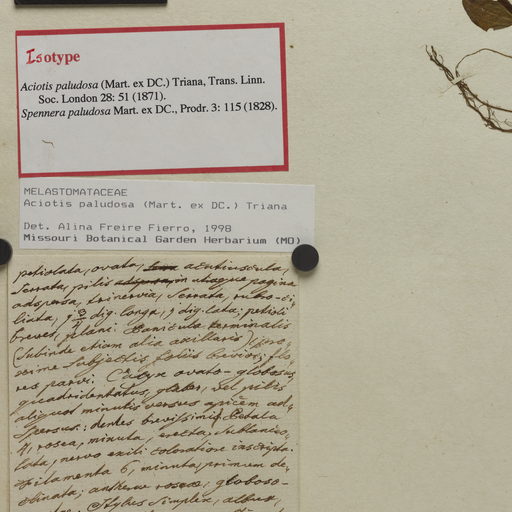 Isotype
Aciotis paludosa (Mart. ex DC.) Triana, Trans. Linn.
Soc. London 28: 51 (1871).
Spennera paludosa Mart. ex DC., Prodr. 3: 115 (1828).
MELASTOMATACEAE
Aciotis paludosa (Mart. ex DC.) Triana
Det. Alina Freire Fierro, 1998
Missouri Botanical Garden Herbarium (MO)
petiolata, ovata, acutiuscula,
serrata, pilis in utraque pagina
adspersa, trinervia, serrata, rubro-ci-
liata, dig. longa, dig. lata; petioli
breves, plani. Panicula terminalis
(subinde etiam alia axillaris)
subjectis foliis brevior; flo-
res parvi. Calyx ovato-globosus
quadridentatus, glaber, vel pilis
aliquot minutis versus apicem ad-
spersus: dentes brevissimi. Petala
4, rosea, minuta, erecta, sublanceo-
lata, nervo exili coloratiore inscripta.
Filamenta 6, minuta, primum de-
clinata; antherae roseae, globoso-
Stylus simplex, albus,